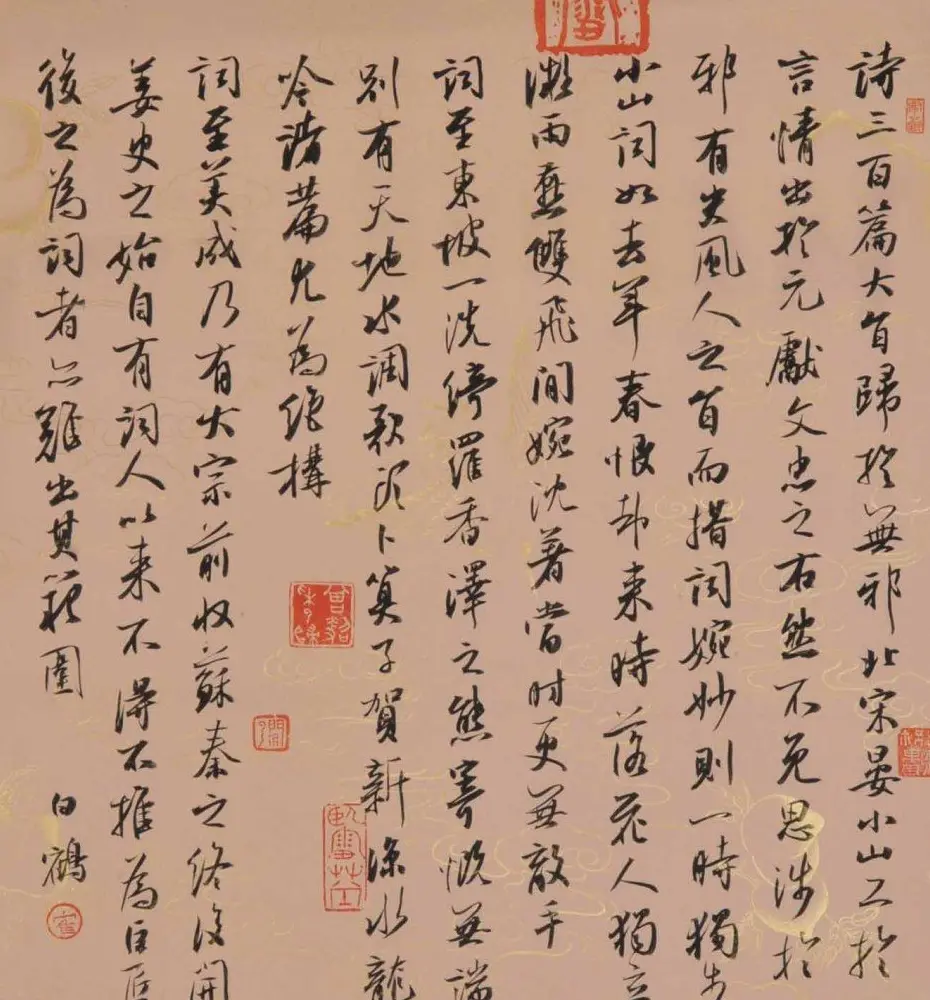 詩三百篇大旨歸於無邪北宋晏小山工於
言情出於元獻文忠之右然不免思涉於
邪有失風人之旨而措詞婉妙則一時獨步
小山詞如去年春恨却來時落花人獨立
微雨燕雙飛閒婉沈著當時更無敵手
詞至東坡一洗綺羅香澤之態寄慨無端
別有天地水調歌頭卜算子賀新涼水龍
吟諸篇尤為絕構
詞至美成乃有大宗前收蘇秦之終後開
姜史之始自有詞人以來不得不推為巨
後之為詞者亦難出其範圍
白鶴